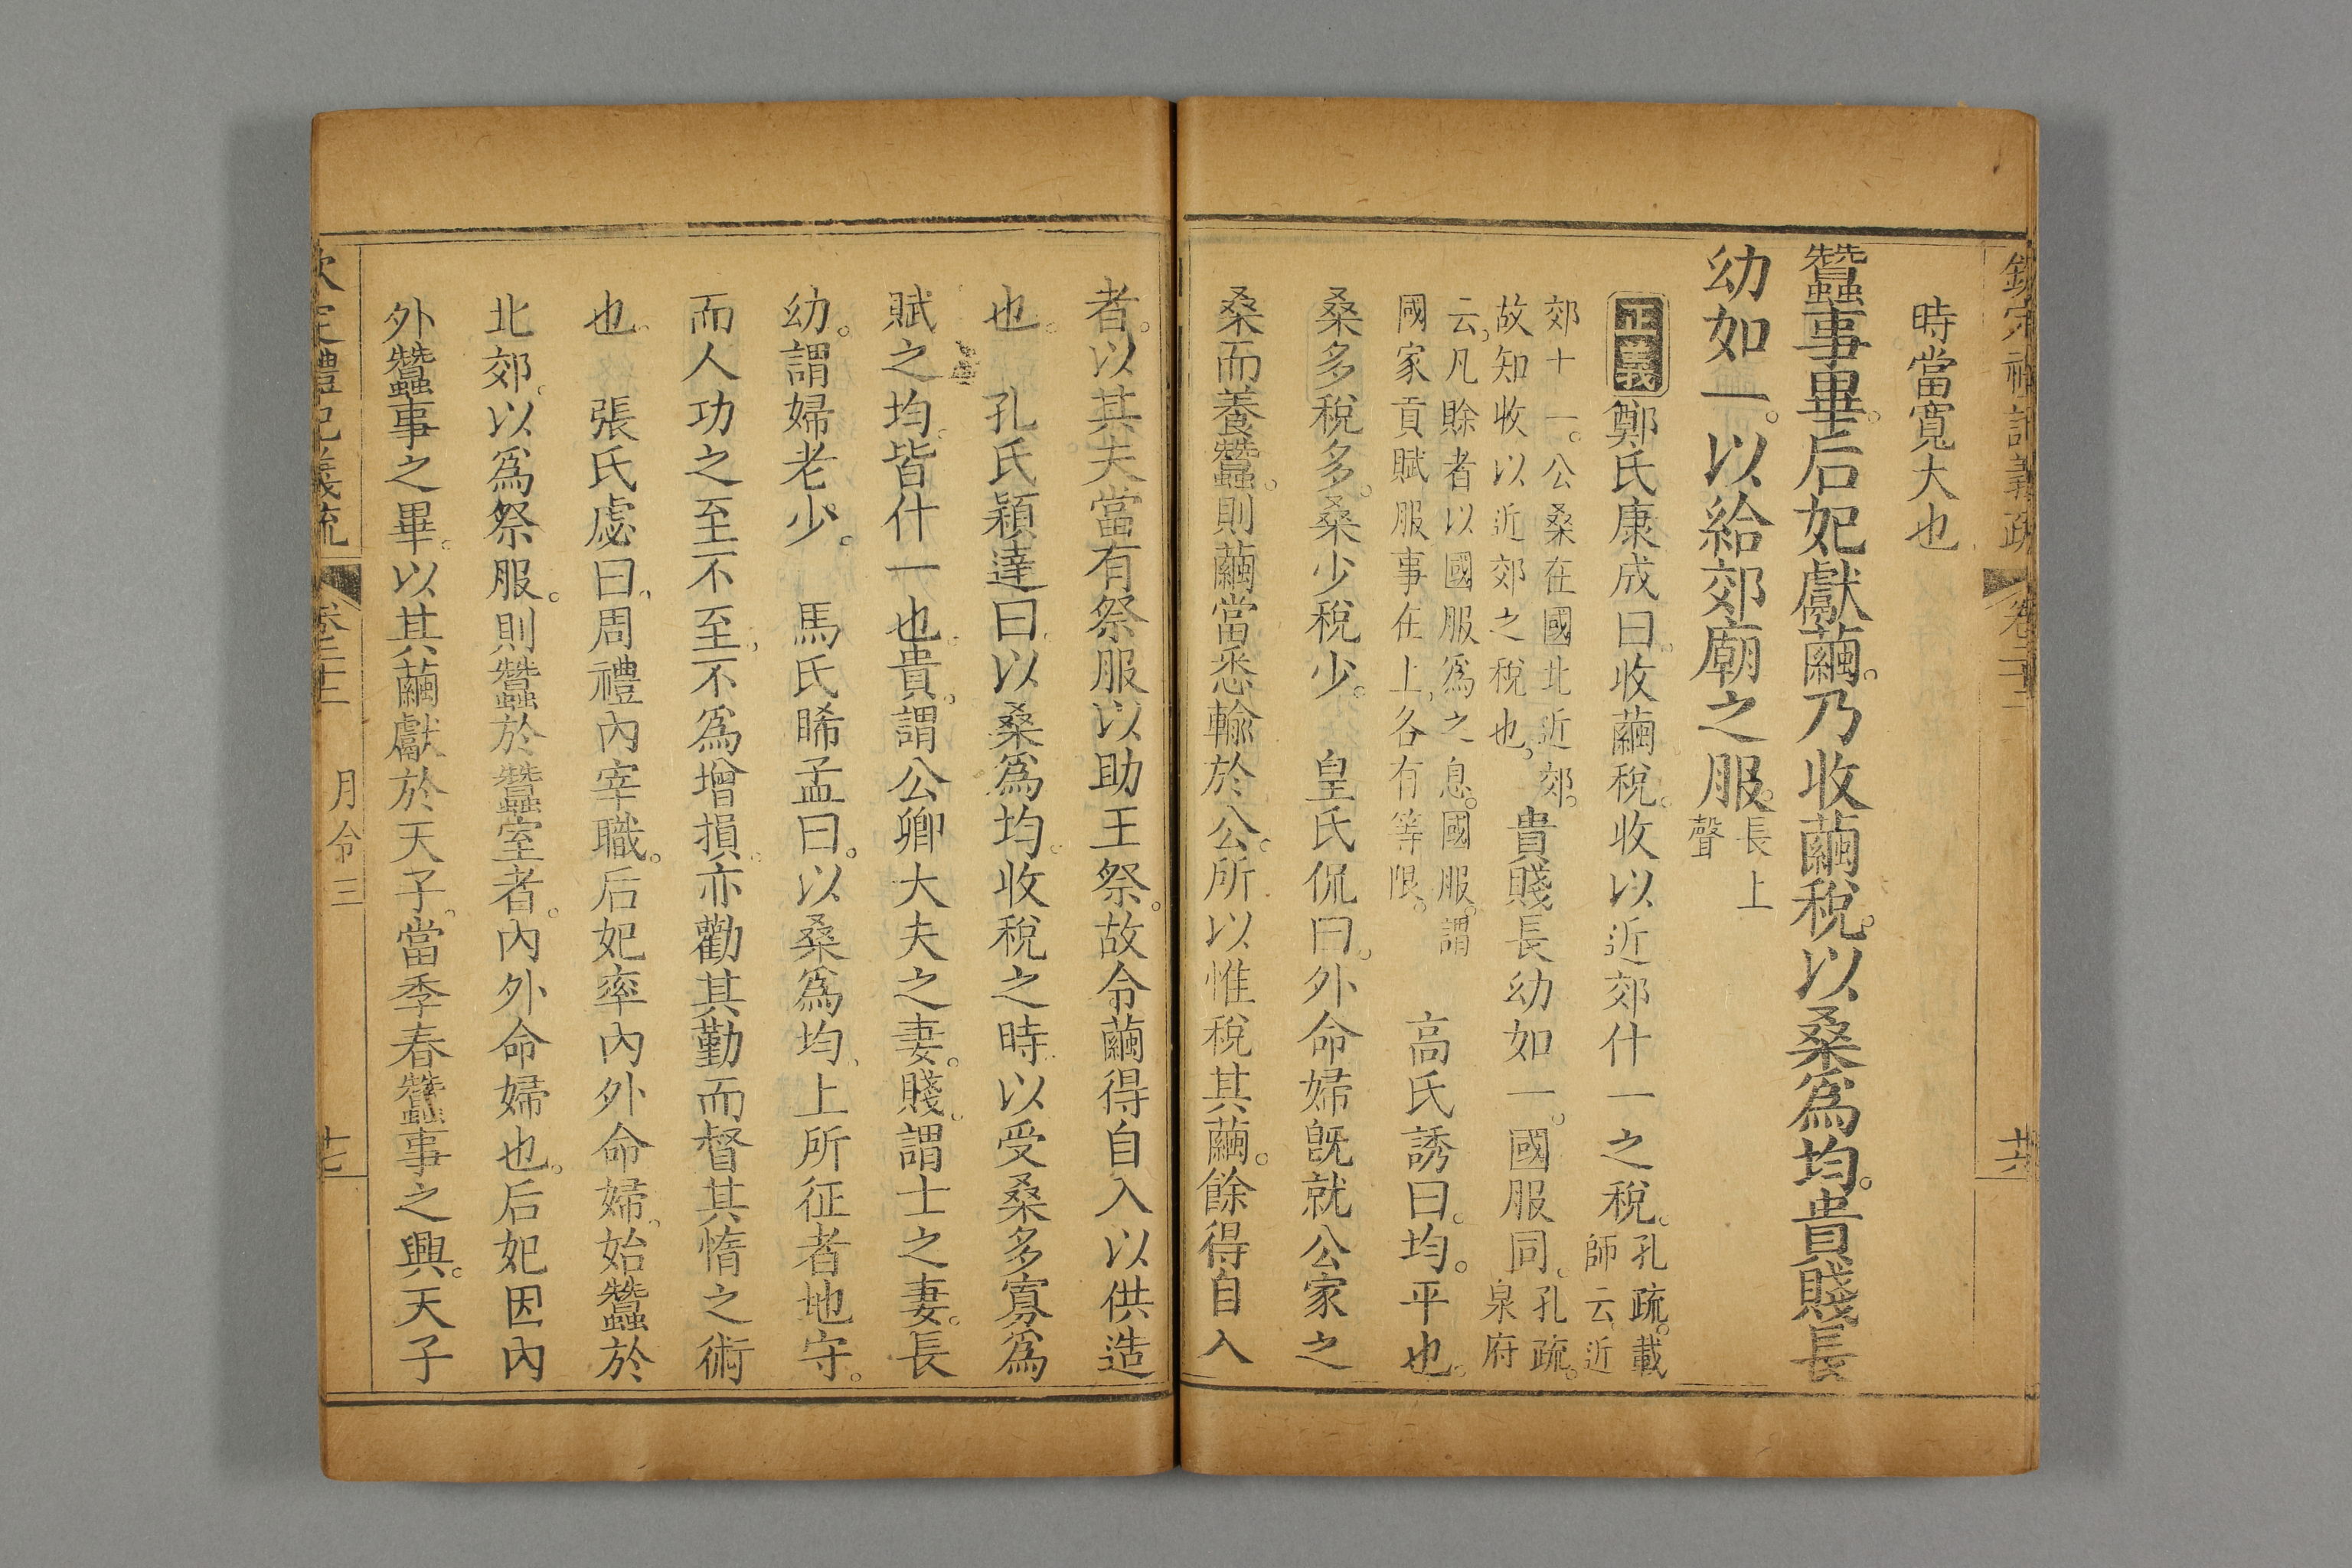 欽定禮記義疏 卷二十二 十六
時當寬大也
蠶事畢。后妃獻繭。乃收繭稅。以桑爲均。貴賤長
幼如一。以給郊廟之服。長上聲
正義 鄭氏康成曰。收繭稅。收以近郊什一之稅。孔疏。載師云。近
郊十一。公桑在國北近郊。故知收以近郊之稅也。貴賤長幼如一。國服同。孔疏。泉府
云。凡賖者以國服爲之息。國服。謂國家貢賦服事在上。各有等限。 高氏誘曰。均。平也。
桑多稅多。桑少稅少。 皇氏侃曰。外命婦旣就公家之
桑而養蠶。則繭當悉輸於公。所以惟稅其繭。餘得自入
者。以其夫當有祭服以助王祭。故令繭得自入以供造
也。 孔氏穎達曰。以桑爲均。收稅之時。以受桑多寡爲
賦之均。皆什一也。貴。謂公卿大夫之妻。賤。謂士之妻。長
幼。謂婦老少。 馬氏晞孟曰。以桑爲均。上所征者地守。
而人功之至不至。不爲增損。亦勸其勤而督其惰之術
也。 張氏慮曰。周禮內宰職。后妃率內外命婦。始蠶於
北郊。以爲祭服。則蠶於蠶室者。內外命婦也。后妃因內
外蠶事之畢。以其繭獻於天子。當季春蠶事之興。天子
欽定禮記義疏 卷二十二 月令三 十七